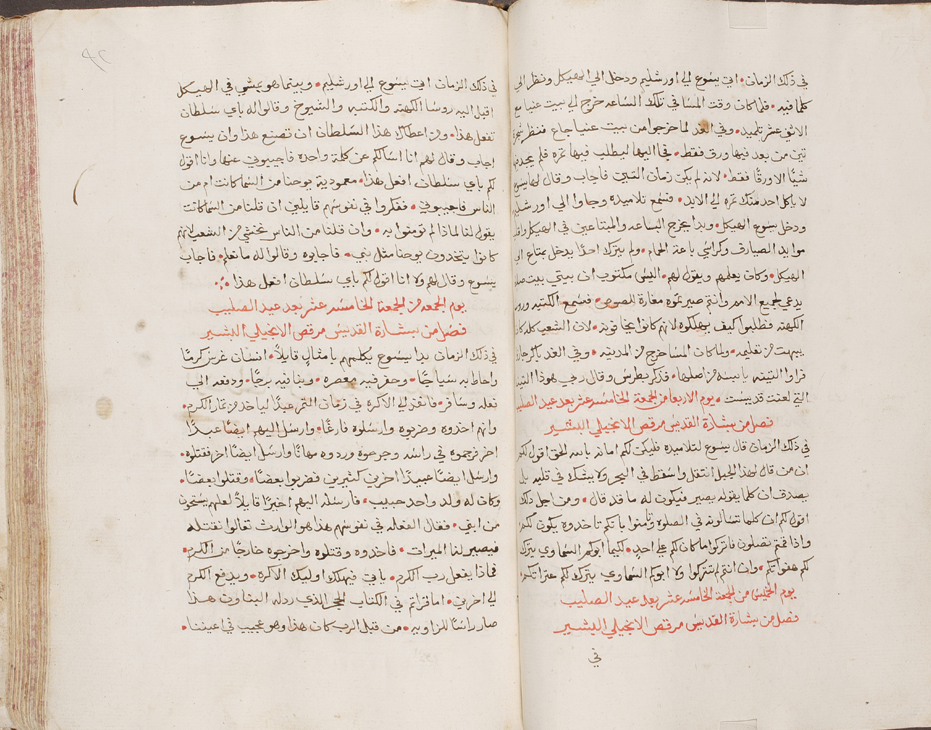 في ذلك الزمان • اتى يسوع الى اورشليم ودخل الي الهيكل ونظر الي
كلما فيه • فلما كان وقت المسا في تلك الساعه خرج الي بيت عنيا مع
الاثني عشر تلميذ • وفي الغد لما خرجوا من بيت عنيا جاع • فنظر شجرة
تين من بعد فيها ورق فقط • فجا اليها ليطلب فيها ثمره فلم يجد فيها
شيًا الا ورقًا فقط • لانه لم يكن زمان التين فاجاب وقال لها يسوع
لا ياكل احد منك ثمره الى الابد • فسمع تلاميذه وجاوا الي اورشليم
ودخل يسوع الهيكل • وبدا يخرج الباعه والمبتاعين في الهيكل
موايد الصيارف وكراسي باعة الحمام • ولم يترك احدًا يدخل بمتاع الي
الهيكل • وكان يعلمهم ويقول لهم • اليس مكتوب ان بيتي بيت صلاه
يدعى لجميع الامم وانتم صيرتموه مغارة للصوص • فسمع الكتبه وروسا
الكهنه فطلبوا كيف يهلكوه لانهم كانوا يخافونه • لان الشعب كله كان
يبهت من تعليمه • ولما كان المسا خرج من المدينه • وفي الغد باكر جازوا
فراوا التينه يابسه من اصلها • فذكر بطرس وقال ربي هوذا التينه
التي لعنت قد يبست • يوم الاربعا من الجمعة الخامسه عشر بعد عيد الصليب
فصل من بشارة القديس مرقص الانجيلي البشير
في ذلك الزمان قال يسوع لتلاميذه فليكن لكم امانه بالله الحق اقول لكم
ان من قال لهذا الجبل انتقل واسقط في البحر ولا يشك في قلبه بل
يصدق ان كلما يقوله يصير فيكون له ما قد قال • ومن اجل ذلك
اقول لكم ان كلما تسالونه في الصلوه وتامنوا بانكم تاخذوه يكون لكم
واذا قمتم تصلون فاتركوا ما كان لكم علي احد • لكيما ابوكم السماوي يترك
لكم هفواتكم • وان انتم لم تتركوا ولا ابوكم السماوي يترك لكم عثراتكم •
يوم الخميس من الجمعة الخامسه عشر بعد عيد الصليب
فصل من بشارة القديس مرقص الانجيلي البشير
في
٩٢
في ذلك الزمان اتى يسوع الي اورشليم • وبينما هو يمشي في الهيكل
اقبل اليه روسا الكهنه والكتبه والشيوخ • وقالوا له باي سلطان
تفعل هذا • ومن اعطاك هذا السلطان ان تصنع هذا وان يسوع
اجاب وقال لهم انا اسالكم عن كلمة واحده فاجيبوني عنها وانا اقول
لكم باي سلطان افعل هذا • معمودية يوحنا من السما كانت ام من
الناس فاجيبوني • ففكروا في نفوسهم قايلين ان قلنا من السما كانت
يقول لنا لماذا لم تومنوا به • وان قلنا من الناس نخشي من الشعب لانهم
كانوا يتخذون يوحنا مثل نبي • فاجابوه وقالوا له ما نعلم • فاجاب
يسوع وقال لهم ولا انا اقول لكم باي سلطان افعل هذا
يوم الجمعه من الجمعة الخامسه عشر بعد عيد الصليب
فصل من بشارة القديس مرقص الانجيلي البشير
في ذلك الزمان بدا يسوع يكلمهم بامثال قايلاً • انسان غرس كرمًا
واحاط به سياجًا • وحفر فيه معصره • وبنا فيه برجًا • ودفعه الي
فعله وسافر • فانفذ الي الاكره في زمان الثمر عبدًا لياخذ من ثمار الكرم •
وانهم اخذوه وضربوه وارسلوه فارغًا • وارسل اليهم ايضًا عبدًا
اخر فرجموه في راسه وجرحوه وردوه مهانًا وارسل ايضًا اخر فقتلوه •
وارسل ايضًا عبيدًا اخرين كثيرين فضربوا بعضًا • وقتلوا بعضًا •
وكان له ولد واحد حبيب • فارسله اليهم اخيرًا قايلاً لعلهم يستحون
من ابني • فقال الفعله في نفوسهم هذا هو الوارث تعالوا نقتله
فيصير لنا الميراث • فاخذوه وقتلوه واخرجوه خارجًا من الكرم •
فماذا يفعل رب الكرم • ياتي فيهلك اوليك الاكره • ويدفع الكرم
الي اخرين • اما قراتم في الكتاب الحجر الذي رذله البناون هذا
صار راسًا للزاويه • من قبل الرب كان هذا وهو عجيب في اعيننا •